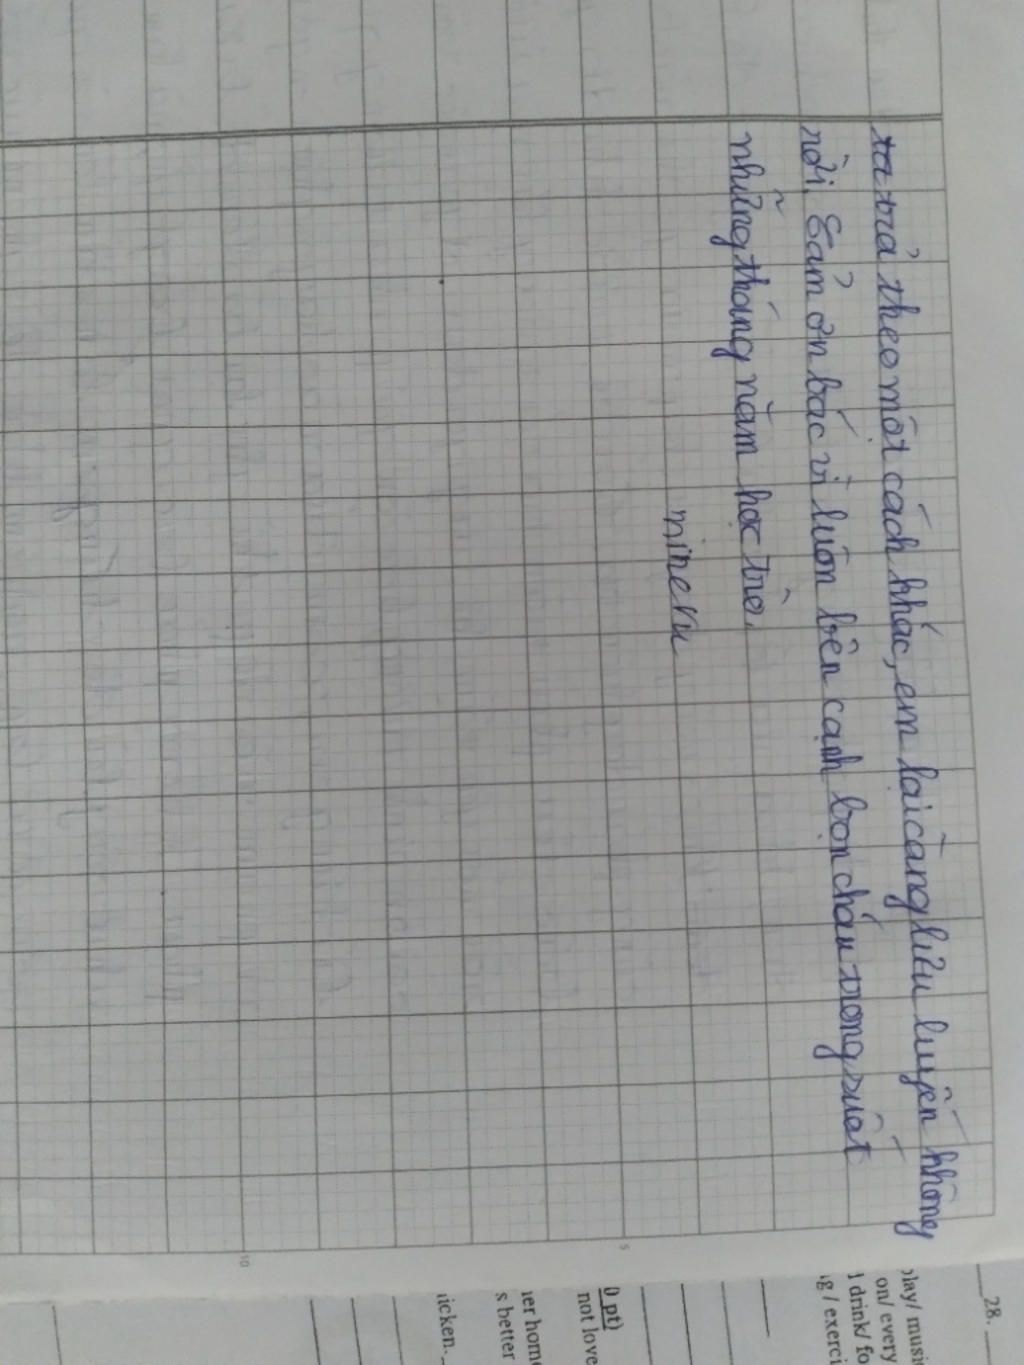 ta trả theo một cách khác, em lại càng lưu luyến không
rời. Cảm ơn bác vì luôn bên cạnh bọn cháu trong suốt
những tháng năm học trò.
mineru
28.
play/ musi
on/ every
drink/ fo
/ exerci
pt)
not love
her home
s better
icken.
5
10